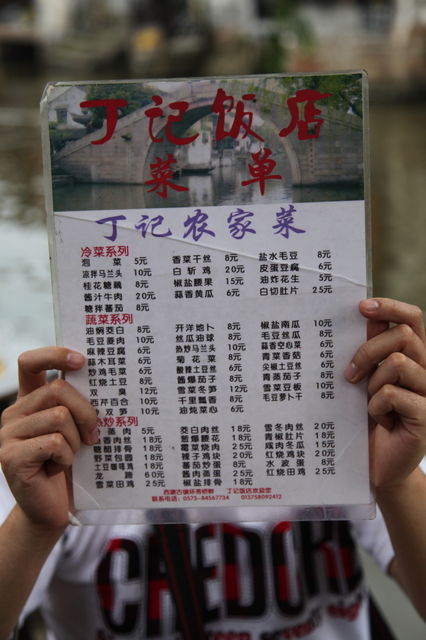 丁记饭店
菜单
丁记农家菜
冷菜系列
泡菜 5元 香菜干丝 8元 盐水毛豆 8元
凉拌马兰头 10元 白斩鸡 20元 皮蛋豆腐 6元
桂花糖藕 8元 椒盐腰果 15元 油炸花生 5元
酱汁牛肉 20元 蒜香黄瓜 6元 白切肚片 25元
糖拌番茄 8元
蔬菜系列
油焖茭白 8元 开洋地卜 8元 椒盐南瓜 10元
毛豆腰肉 10元 丝瓜油球 8元 毛豆丝瓜 8元
麻辣豆腐 6元 热炒马兰 10元 蒜香空心菜 6元
蒜木耳菜 6元 菊花菜 8元 青菜香菇 6元
炒鸡毛菜 6元 酸辣土豆丝 6元 尖椒土豆丝 6元
红烧土豆 8元 酱爆茄子 8元 青蒸茄子 8元
双臭 12元 雪菜冬笋 12元 雪菜豆板 10元
西芹百合 10元 千里飘香 8元 毛豆萝卜干 8元
双笋 10元 油炖菜心 6元
热炒系列
肉 5元 茭白肉丝 18元 雪冬肉丝 20元
香肉丝 18元 葱爆腰花 18元 青椒肚片 18元
糖醋排骨 18元 葡菜烧肉 25元 咸肉冬瓜 15元
野菜包圆 18元 辣子鸡块 20元 红烧鸡块 20元
土豆 18元 蕃茄炒蛋 8元 水波蛋 8元
60元 酱肉蒸蛋 10元 红烧田鸡 25元
雪菜田鸡 25元 椒盐排骨 18元
西塘古镇环秀桥 丁记饭店欢迎您
联系电话：0573-84567734 013758092412
CAEDORE